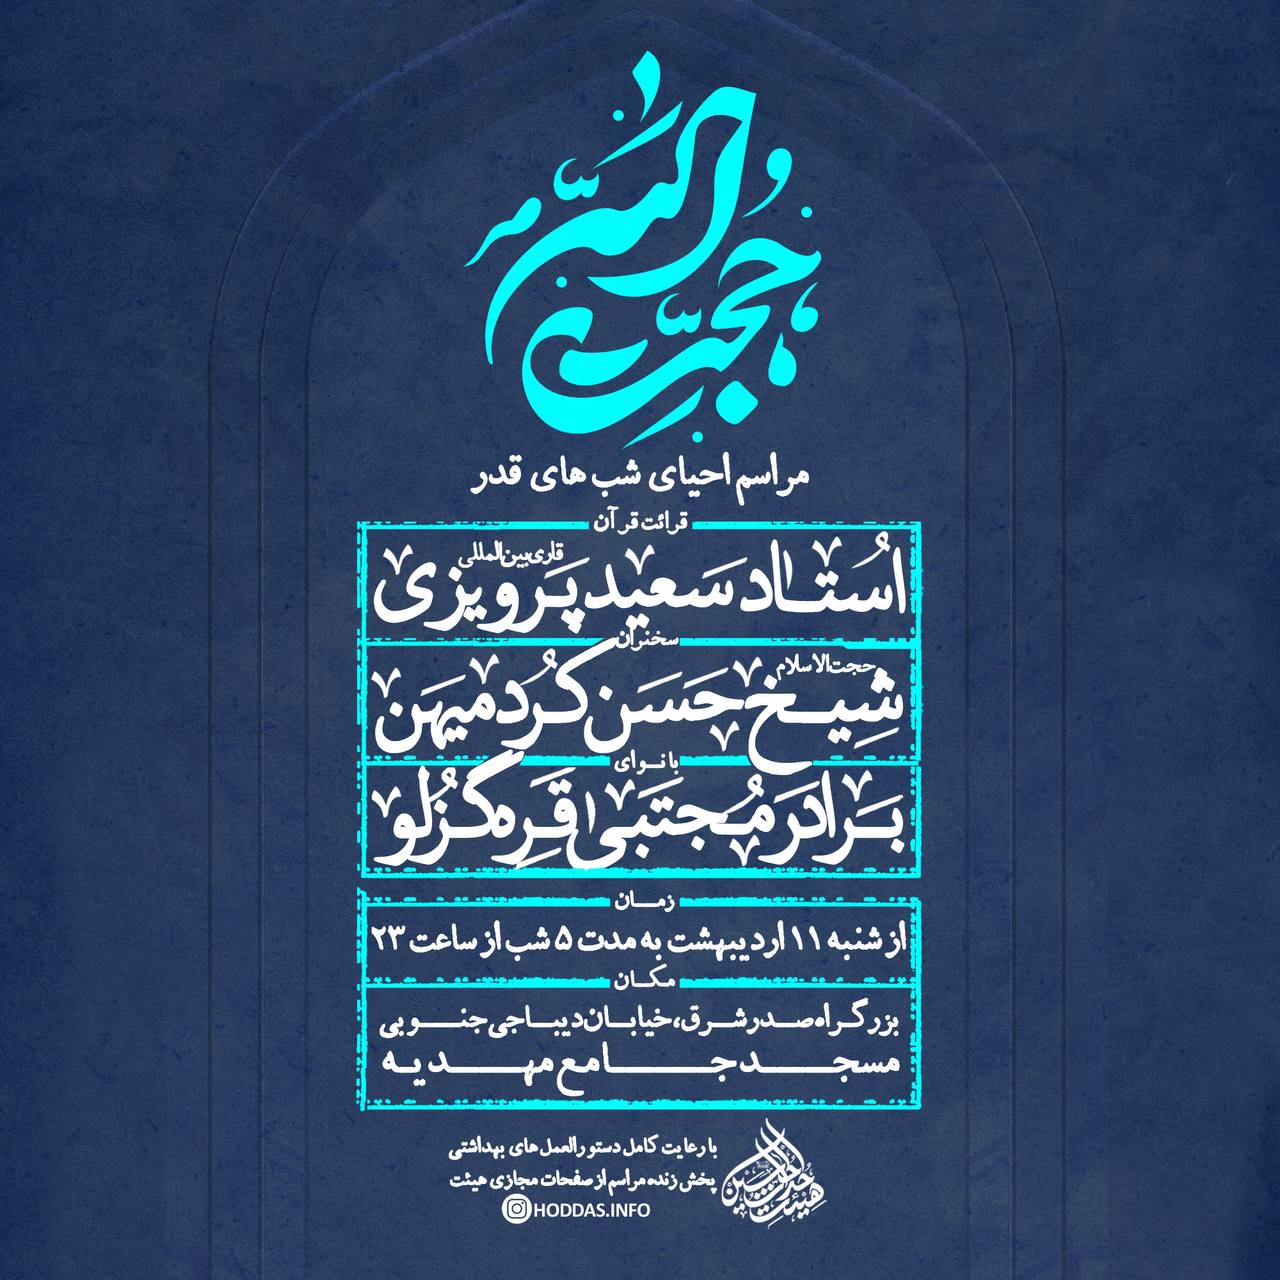 حجت الله
مراسم احیای شب های قدر
قرائت قرآن
قاری بین‌المللی
اُستاد سعید پَرویزی
سخنران
حجت‌الاسلام
شِیخ حَسَن کُردمیهَن
با نوای
بَرادَر مُجتَبی قَرِه‌گُزلُو
زمان
از شنبه ۱۱ اردیبهشت به مدت ۵ شب از ساعت ۲۳
مکان
بزرگراه صدر شرق، خیابان دیباجی جنوبی
مسجد جامع مهدیه
با رعایت کامل دستورالعمل های بهداشتی
پخش زنده مراسم از صفحات مجازی هیئت
HODDAS.INFO